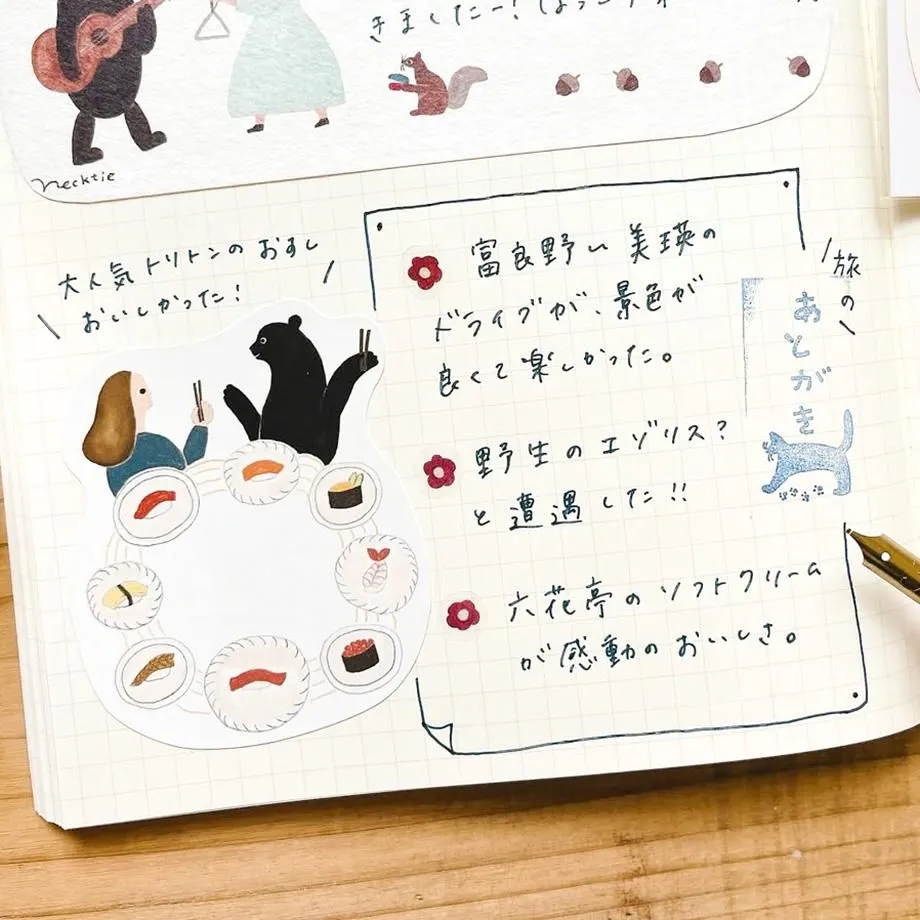 きましたー!
necktie
大人気トリトンのおすし
おいしかった!
富良野い美瑛の
ドライブが、景色が
良くて楽しかった。
野生のエゾリス?
と遭遇した!!
六花亭のソフトクリーム
が感動のおいしさ。
旅の
あとがき